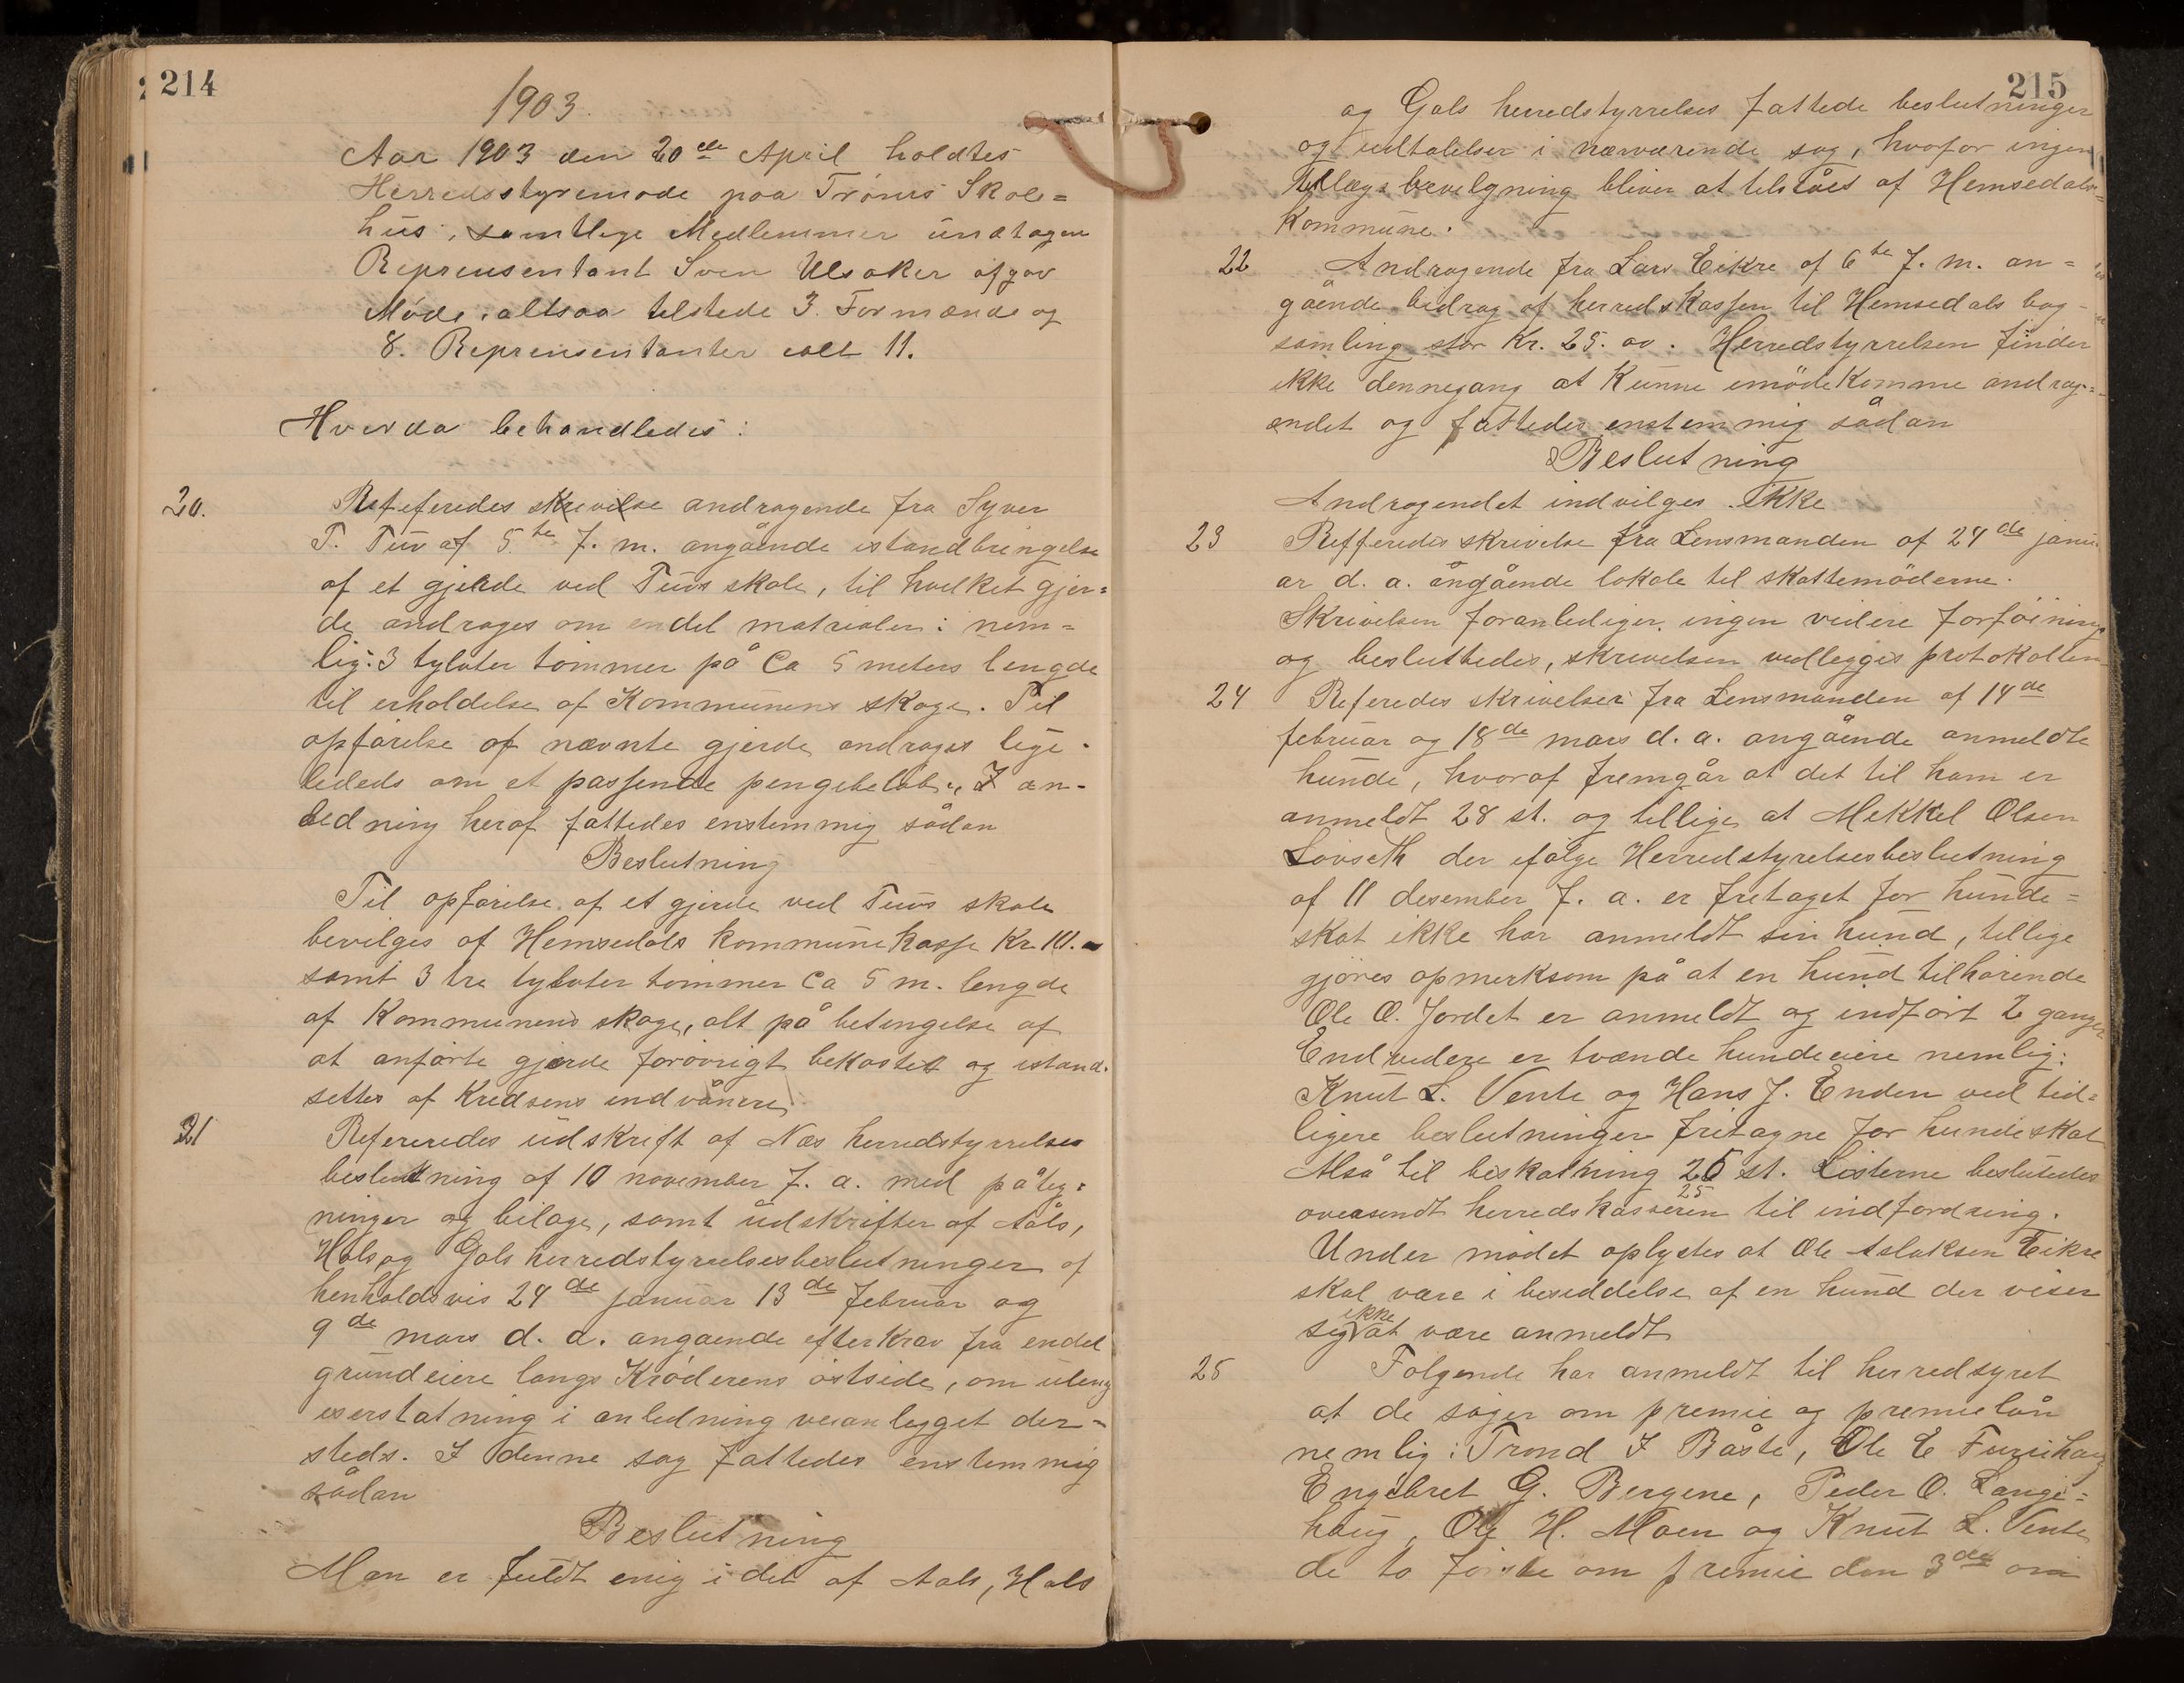 214
1903.
Aar 1903 den 20de April holdtes
Herredsstyremøde paa Trøims Skole=
hus, samtlige Medlemmer undtagen
Reprensentant Sven Ulsaker afgav
Møde, altsaa tilstede 3. Formænd og
8. Reprensentanter ialt 11.
Hverda behandledes:
20. Refeferedes skrivelse andragende fra Syver
T. Tuv af 5te f. m. angående istandbringelse
af et gjerde ved Tuvs skole, til hvilket gjer=
de andrages om endel matrialer: nem=
lig: 3 tylvter tømmer på Ca 5 meters lengde
til erholdelse af Kommunens skoge. Til
opførelse af nævnte gjerde andrages lige-
lededs om et passende pengebeløb. I an-
ledning heraf fattedes enstemmig sådan
Beslutning
Til opførelse af et gjerde ved Tuvs skole
bevilges af Hemsedals kommunekasse Kr 10.-
samt 3 tre tylvter tømmer Ca 5 m. lengde
af Kommunens skoge, alt på betingelse af
at anførte gjerde forøvrigt bekostet og istand-
settes af Kredsens indvånere
21 Refereredes udskrift af Næs herredstyrrelses
beslutning af 10 november f. a. med påteg=
ninger og bilage, samt udskrifter af Åls,
Hols og Gols herredstyrrelsesbeslutninger af
henholdsvis 24de januar 13de februar og
9de mars d. a. angaende efterkrav fra endel
grundeiere langs Krøderens østside, om ulemp
eserstatning i anledning veianlegget der-
steds. I denne sag fattedes enstemmig
sådan
Beslutning
Man er fuldt enig i det af Aals, Hols
215
og Gols herredstyrrelses fattede beslutninger
og udtalelser i nærværende sag, hvofor ingen
Tillægsbevilgning bliver at tilståes af Hemsedals=
Kommune.
22 Andragende fra Lars Eikre af 6te f. m. an=
gående bidrag af herredskassen til Hemsedals bog-
samling stor Kr. 25.00. Herredstyrrelsen finder
ikke dennegang at kunne imødekomme andrag=
endet og fattedes enstemmig sådan
Beslutning
Andragendet indvilges ikke
23 Refferedes skrivelse fra Lensmanden af 24de janu
ar d. a. ångående lokale til skattemøderne.
Skrivelsen foranlediger ingen videre forføining
og besluttedes, skrivelsen vedlegges protokollen
24 Referedes skrivelser fra Lensmanden af 14de
februar og 18de mars d. a. angående anmeldte
hunde, hvoraf fremgår at det til ham er
anmeldt 28 st. og tillige at Mekkel Olsen
Løvseth der ifølge Herredstyrelsesbeslutning
af 11 desember f. a. er fretaget for hunde=
skat ikke har anmeldt sin hund, tillige
gjøres opmerksom på at en hund tilhørende
Ole O. Jordet er anmeldt og indført 2 ganger
Endvidere er tvænde hundeeiere nemlig:
Knut L. Vente og Hans J. Enden ved tid=
ligere beslutninger fritagne for hundeskat
Altså til beskatning 25 st. Listerne beslutedes
25
oversendt herredskasseren til indfordring.
Under mødet oplystes at Ole Aslaksen Eikre
skal være i besiddelse af en hund der viser
sig ikke at være anmeldt
25 Følgende har anmeldt til herredsyret
at de søger om premie og premielån
nemlig: Trond I Båste, Ole E Furuhaug
Engebret G. Bergene, Peder O. Lange=
haug, Ole H. Moen og Knut L. Vente
de to første om premie den 3de om